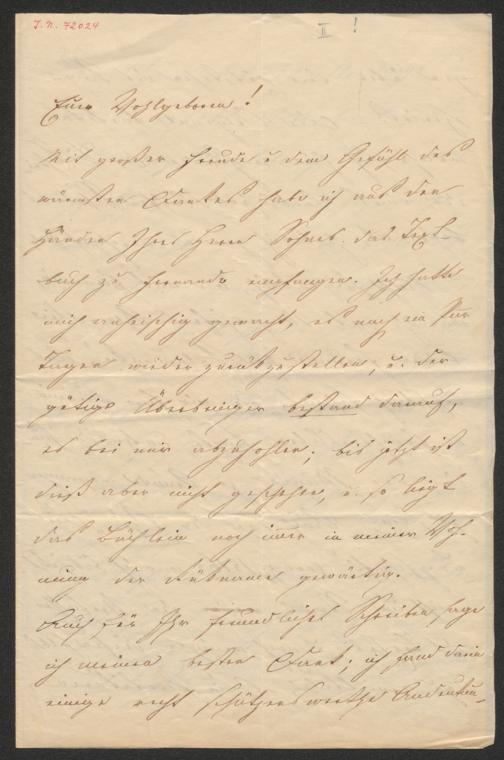 I.N. 72024
II !
Euer Wohlgeboren!
Mit großer Freude u dem Gefühl des
wärmsten Dankes habe ich aus den
Händen Ihres Herrn Sohnes das Text-
buch zu Fernando empfangen. Ich hatte
mich anheischig gemacht, es nach ein Par
Tagen wieder zurückzustellen, u. der
gütige Überbringer bestand darauf,
es bei mir abzuhohlen; bis jetzt ist
dieß aber nicht geschehen, u. so liegt
das Büchlein noch immer in meiner Woh-
nung der Rüknahme gewärtig.
Auch für Ihr freundliches Schreiben sage
ich meinen besten Dank; ich fand darin
einige recht schätzenswerthe Andeutun-